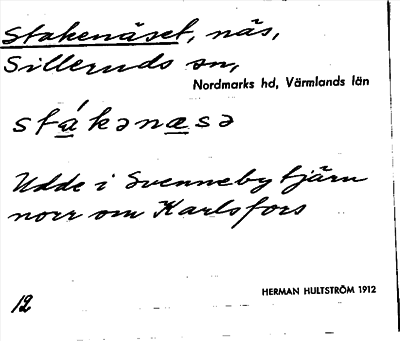 Stakenäset, näs,
Silleruds sn,
Nordmarks hd, Värmlands län
stákənæsə
Udde i Svennebytjärn
norr om Karlsfors
HERMAN HULTSTRÖM 1912
12